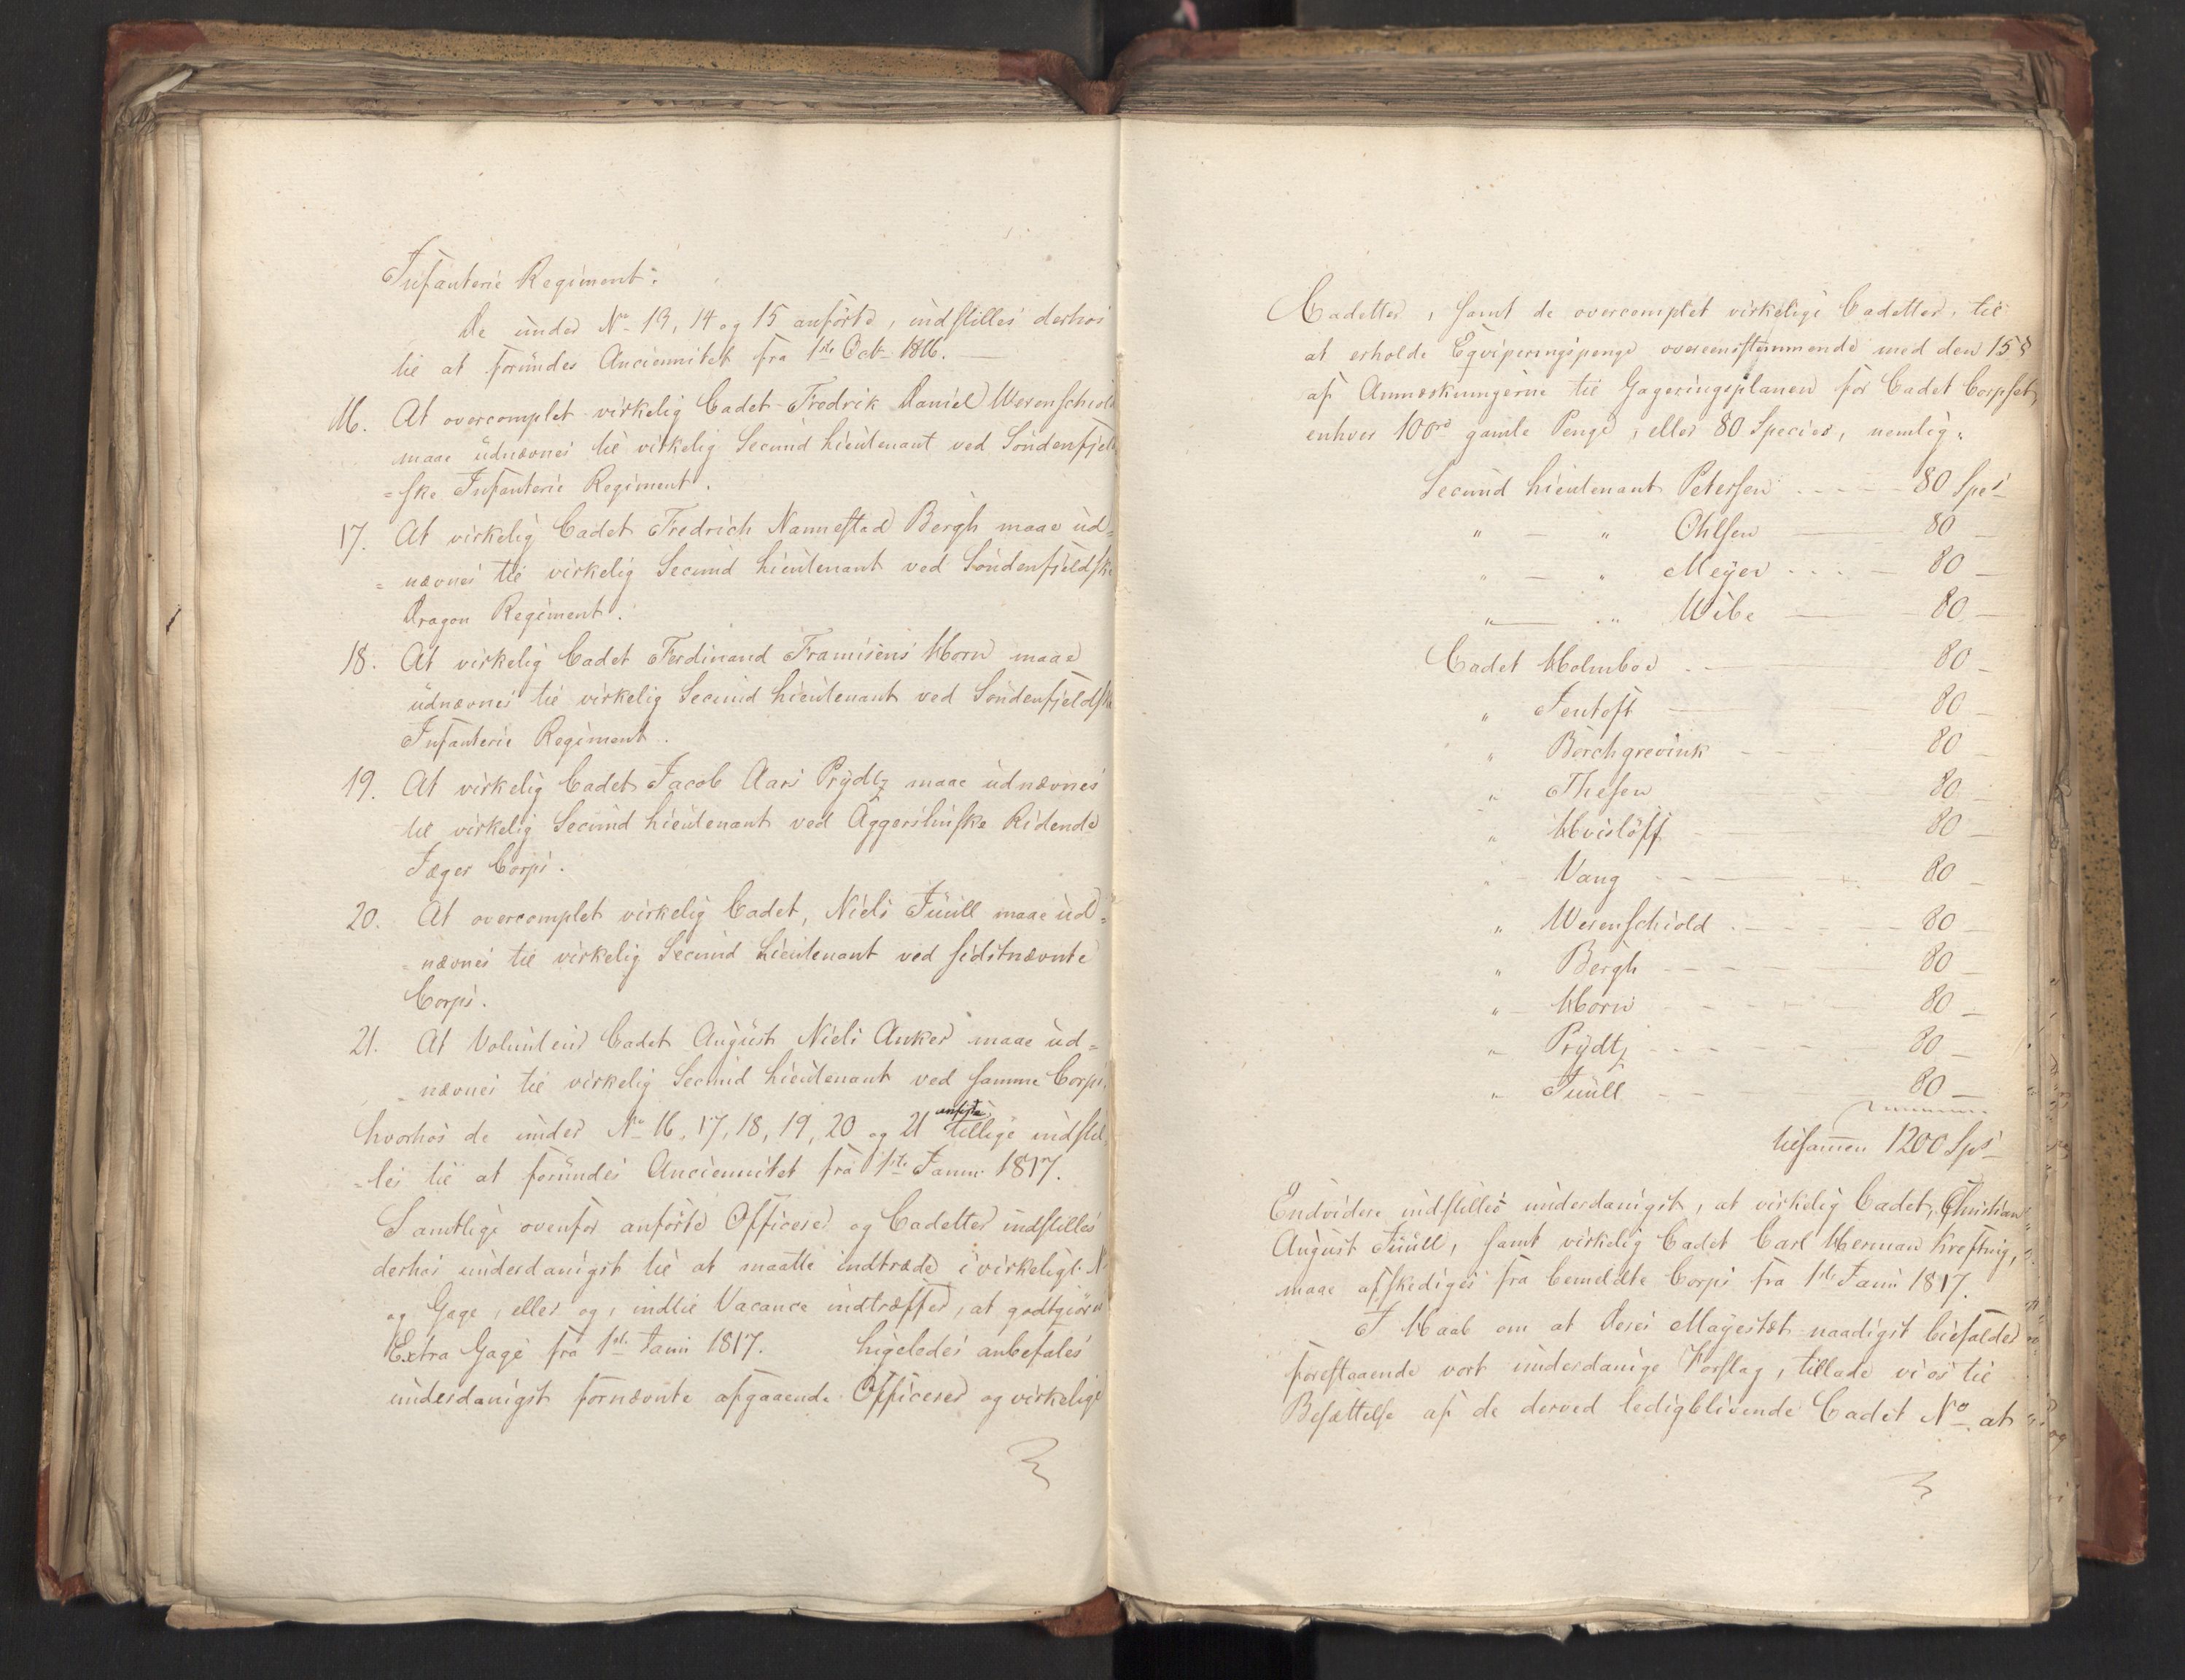 Infanterie Regiment.
De under No 13, 14 og 15 anförte, indstilles derhos
til at forundes Anciennitet fra 1ste Octr 1816.
16. At overcomplet virkelig Cadet Fredrik Daniel Werenschiold
maae udnævnes til virkelig Secund Lieutenant ved Söndenfjeld
=ske Infanterie Regiment.
17. At virkelig Cadet Fredrich Nannestad Bergh maae ud=
=nævnes til virkelig Secund Lieutenant ved Söndenfjeldske
Dragon Regiment.
18. At virkelig Cadet Ferdinand Horn maae
udnævnes til virkelig Secund Lieutenant ved Söndenfjeldske
Infanterie Regiment.
19. At virkelig Cadet Jacob Aars Prÿdtz maae udnævnes
til virkelig Secund Lieutenant ved Aggershuske Ridende
Jæger Corps.
20. At overcomplet virkelig Cadet, Niels Juull maae ud=
=nævnes til virkelig Secund Lieutenant ved sidstnævnte
Corps.
21. At Volunteur Cadet August Niels Anker maae ud=
=nævnes til virkelig Secund Lieutenant ved samme Corps,
hvorhos de under No 16, 17, 18, 19, 20 og 21 anförte tillige indstil
=les til at forundes Anciennitet fra 1ste Janur 1817.
Samtlige ovenfor anförte Officerer og Cadetter indstilles
derhos underdanigst til at maatte indtræde i virkeligt No
og Gage, eller og, indtil Vacance indtræffer, at godtgiöres
Extra Gage fra 1ste Janr 1817. Ligeledes anbefales
underdanigst fornævnte afgaaende Officerer og virkelige
Cadetter, samt de overcomplet virkelige Cadetter, til
at erholde Eqviperingspenge overeensstemmende med den 15 §
af Anmærkningerne til Gageringsplanen for Cadet Corpset,
enhver 100rd gamle Penge, eller 80 Species, nemlig:
Secund Lieutenant Petersen 80 Sps
" — " Ohlsen 80 —
" — " Meÿer 80 —
" — " Wibe 80 —
Cadet Holmboe 80 —
" Jentoft 80 —
" Borchgrevink 80 —
" Thesen 80 —
" Hvislöff 80 —
" Vang 80 —
" Werenschiold 80 —
" Bergh 80 —
" Horn 80 —
" Prÿdtz 80 —
" Juull 80 —
tilsammen 1200 Sps
Endvidere indstilles underdanigst, at virkelig Cadet, Christian
August Juull, samt virkelig Cadet Carl Herman Krefting,
maae afskediges fra bemeldte Corps fra 1ste Janr 1817.
I Haab om at Deres Majestæt naadigst bifalder
forestaaende vort underdanige Forslag, tillade vi os til
Besættelse af de derved ledigblivende Cadet No at